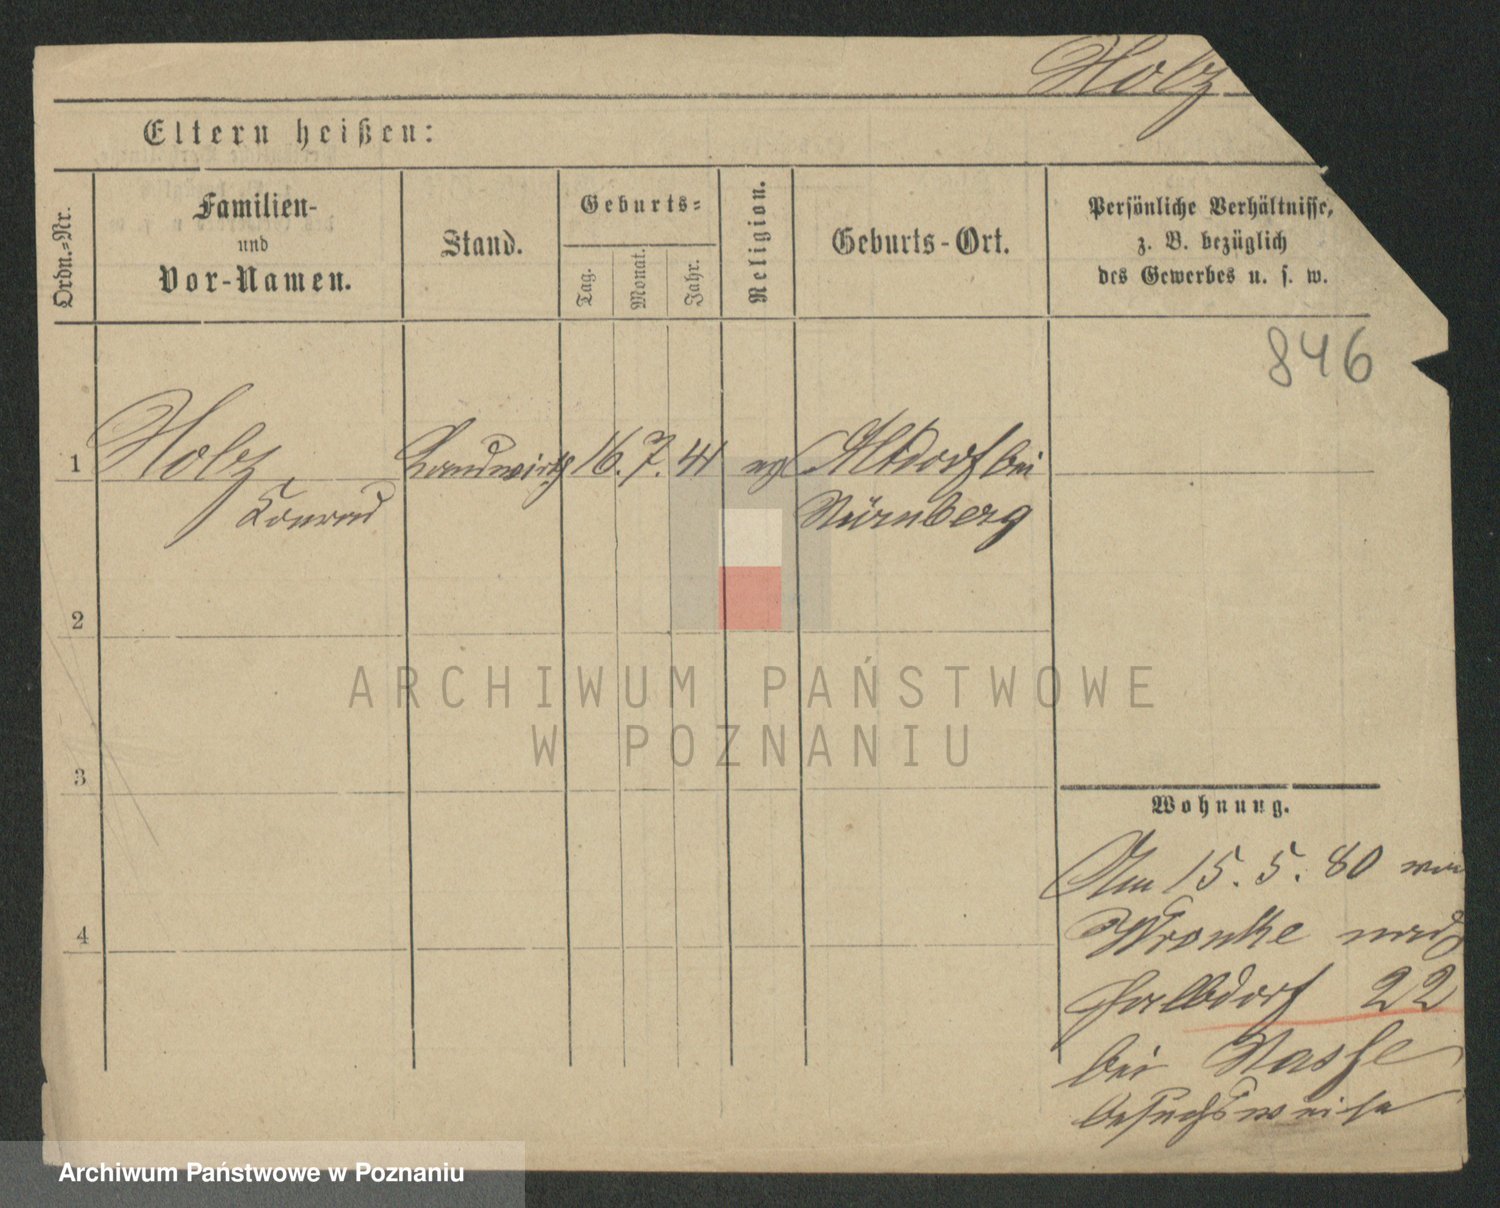 Holz
Eltern heißen:
Ordn.-Nr.
Familien-
und
Vor-Namen.
Stand.
Geburts-
Tag.
Monat.
Jahr.
Religion.
Geburts-Ort.
Persönliche Verhältnisse,
z. B. bezüglich
des Gewerbes u. s. w.
846
1 Holz Landwirth 16. 7. 41 Altdorf bei
Konrad Nürnberg
2
3
4
Wohnung.
Am 15. 5. 80 von
Wronke nach
Halbdorf 22
bei Nasse
besuchsweise
ARCHIWUM PAŃSTWOWE
W POZNANIU
Archiwum Państwowe w Poznaniu